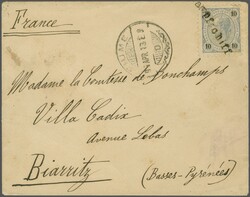 France
10 10
Madame la Comtesse de Bonchamps
Villa Cadix
Avenue Lebas
Biarritz
(Basses-Pyrénées)